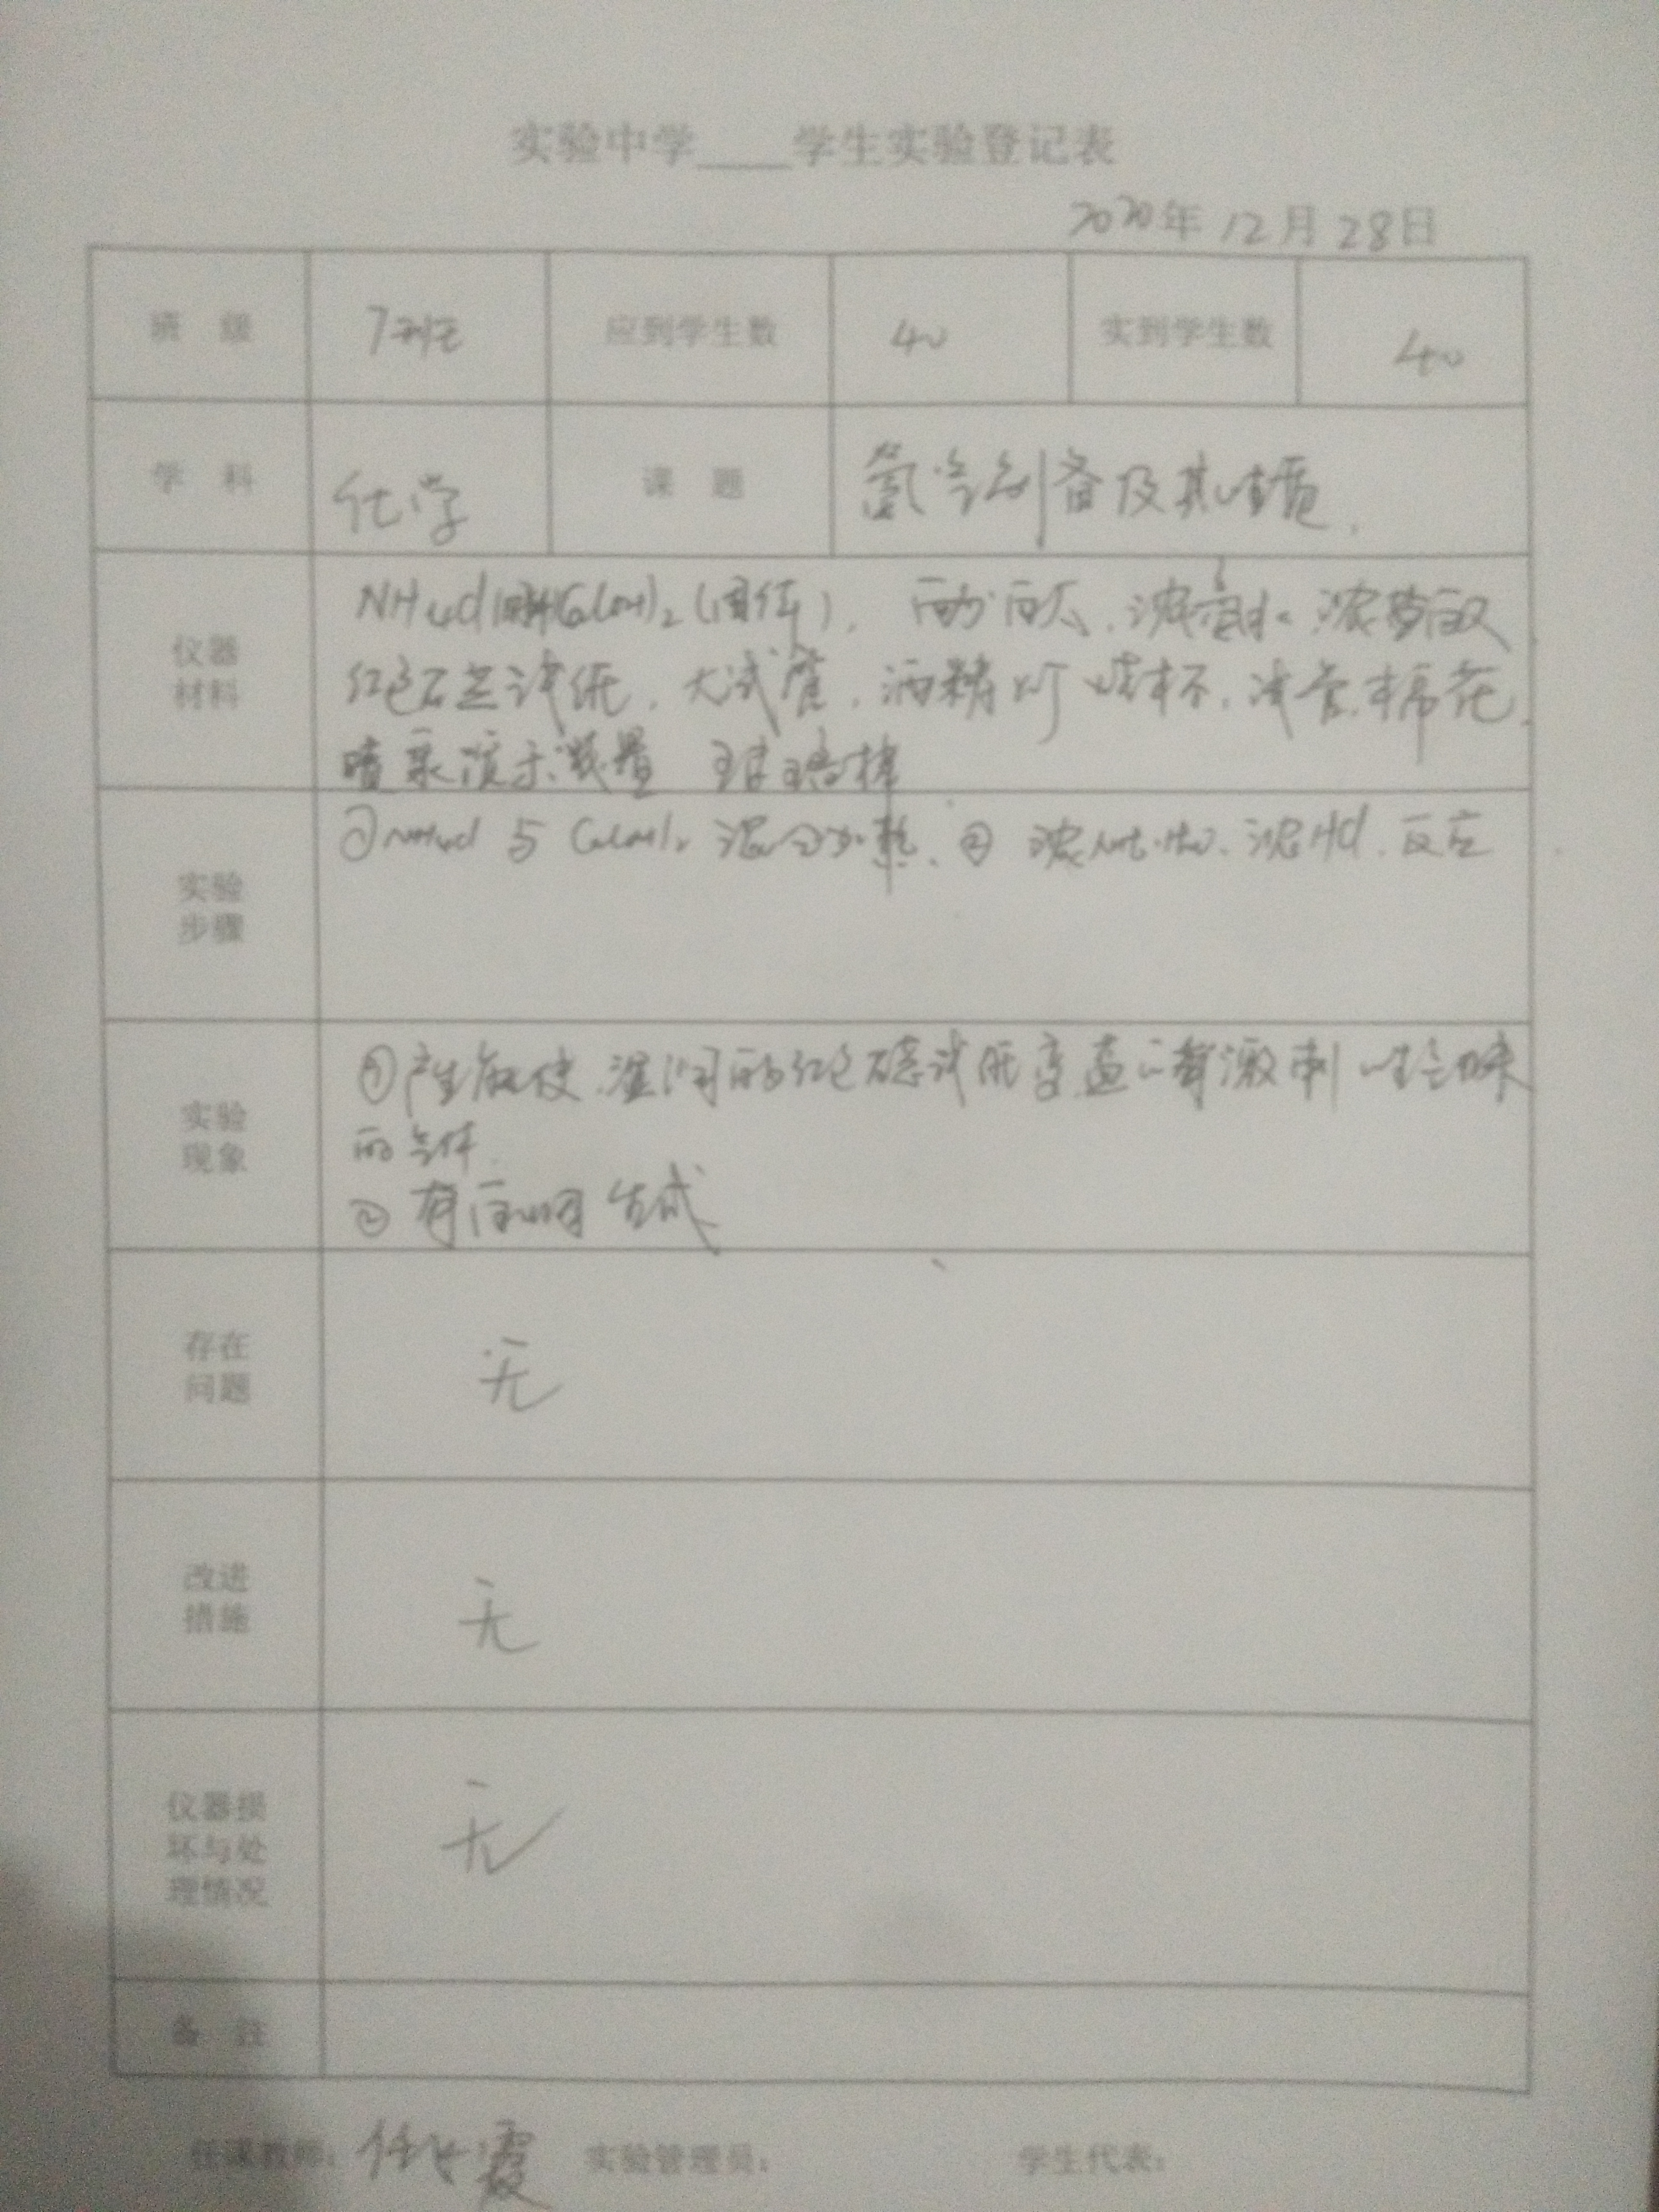 实验中学____学生实验登记表
2020年 12月 28日
班 级 7班 应到学生数 40 实到学生数 40
学 科 化学 课 题 氨气制备及其性质.
仪器材料 NH4Cl(固体) Ca(OH)2(固体), 酚酞, 浓氨水. 浓盐酸
红色石蕊试纸, 大试管, 酒精灯 烧杯, 导管, 棉花,
喷泉演示装置 玻璃棒
实验步骤 ①NH4Cl 与 Ca(OH)2 混合加热, ② 浓NH3·H2O, 浓HCl, 反应
实验现象 ①产生能使湿润的红色石蕊试纸变蓝的有刺激性气味
的气体.
② 有白烟生成
存在问题 无
改进措施 无
仪器损坏与处理情况 无
备 注
任课教师: 霞 实验管理员: 学生代表: